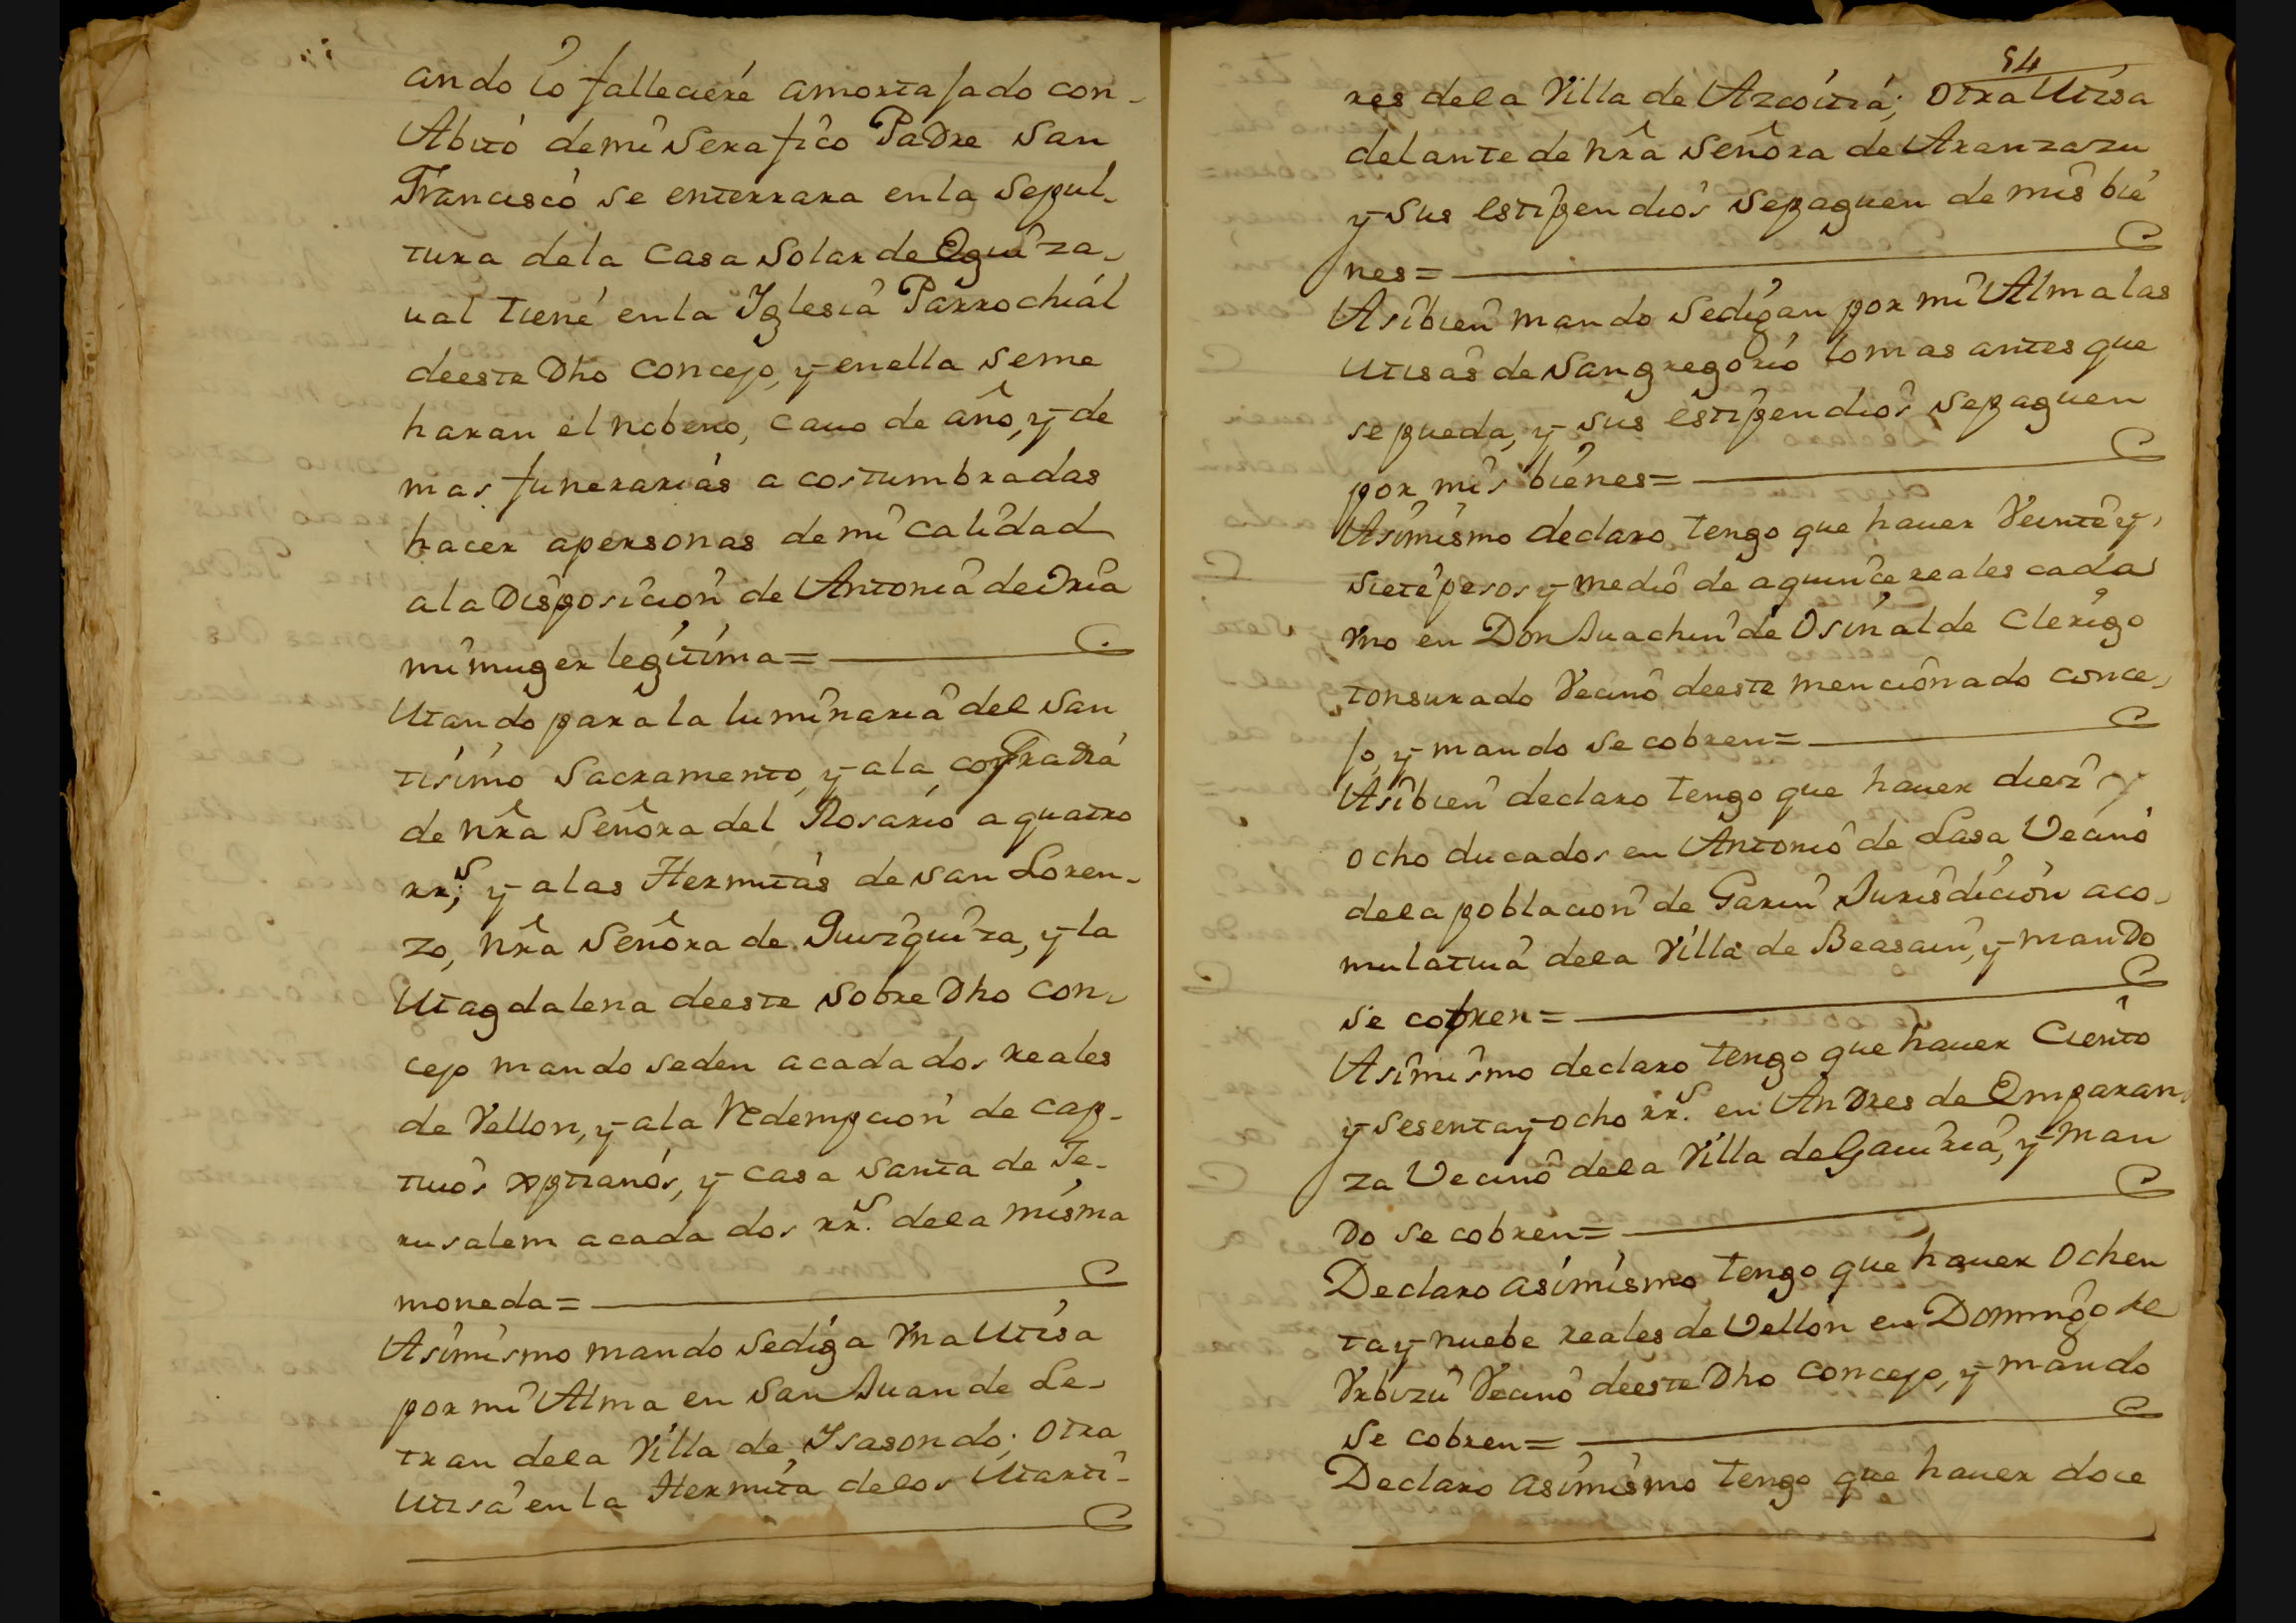 ando io falleciere amortajado con
Abito demi Serafico Padre San
Francisco se enterrara enla Sepul-
tura dela Casa Solar de Eguiza-
ual tiene enla Iglesia Parrochial
deeste Dho Concejo, y enella seme
haran el nobeno, cauo de año, y de
mas funerarias acostumbradas
hacer apersonas de mi calidad
ala Disposicion de Antonia de Iria
mi muger legitima=
Mando para la luminaria del San
tisimo Sacramento, y ala cofradia
de nra Señora del Rosario a quatro
rrs; y alas Hermitas de San Loren-
zo, nra Señora de Guizquiza, y la
Magdalena deeste Sobre Dho con-
cejo mando seden acada dos reales
de Vellon, y ala Redempcion de cap-
tiuos xptianos, y casa santa de Je-
rusalem acada dos rrs. dela misma
moneda=
Asimismo mando sediga Vna Misa
por mi Alma en San Juan de Le-
tran dela Villa de Isasondo; otra
Misa en la Hermita delos Marti-
54
res dela Villa de Azcoitia; otra Misa
delante de nra Señora de Aranzazu
y sus estipendios sepaguen de mis bie
nes=
Asibien mando sedigan por mi Alma las
Misas de San gregorio lo mas antes que
se pueda, y sus estipendios sepaguen
por mis bienes=
Asimismo declaro tengo que hauer Veinte y
siete pesos y medio de aquince reales cada
Vno en Don Juachin de Osinalde Clerigo
tonsurado Vecino deeste mencionado conce-
jo, y mando se cobren=
Asibien declaro tengo que hauer diez y
ocho ducados en Antonio de Lasa Vecino
dela poblacion de Garin Jurisdicion aco-
mulatiua dela Villa de Beasain, y mando
se cobren=
Asimismo declaro tengo que hauer Ciento
y sesenta y ocho rrs. en Andres de Emparan-
za Vecino dela Villa de Gauiria, y man
do se cobren=
Declaro asimismo tengo que hauer ochen
ta y nuebe reales de Vellon en Domingo de
Vrbizu Vecino deeste Dho concejo, y mando
se cobren=
Declaro asimismo tengo que hauer doce